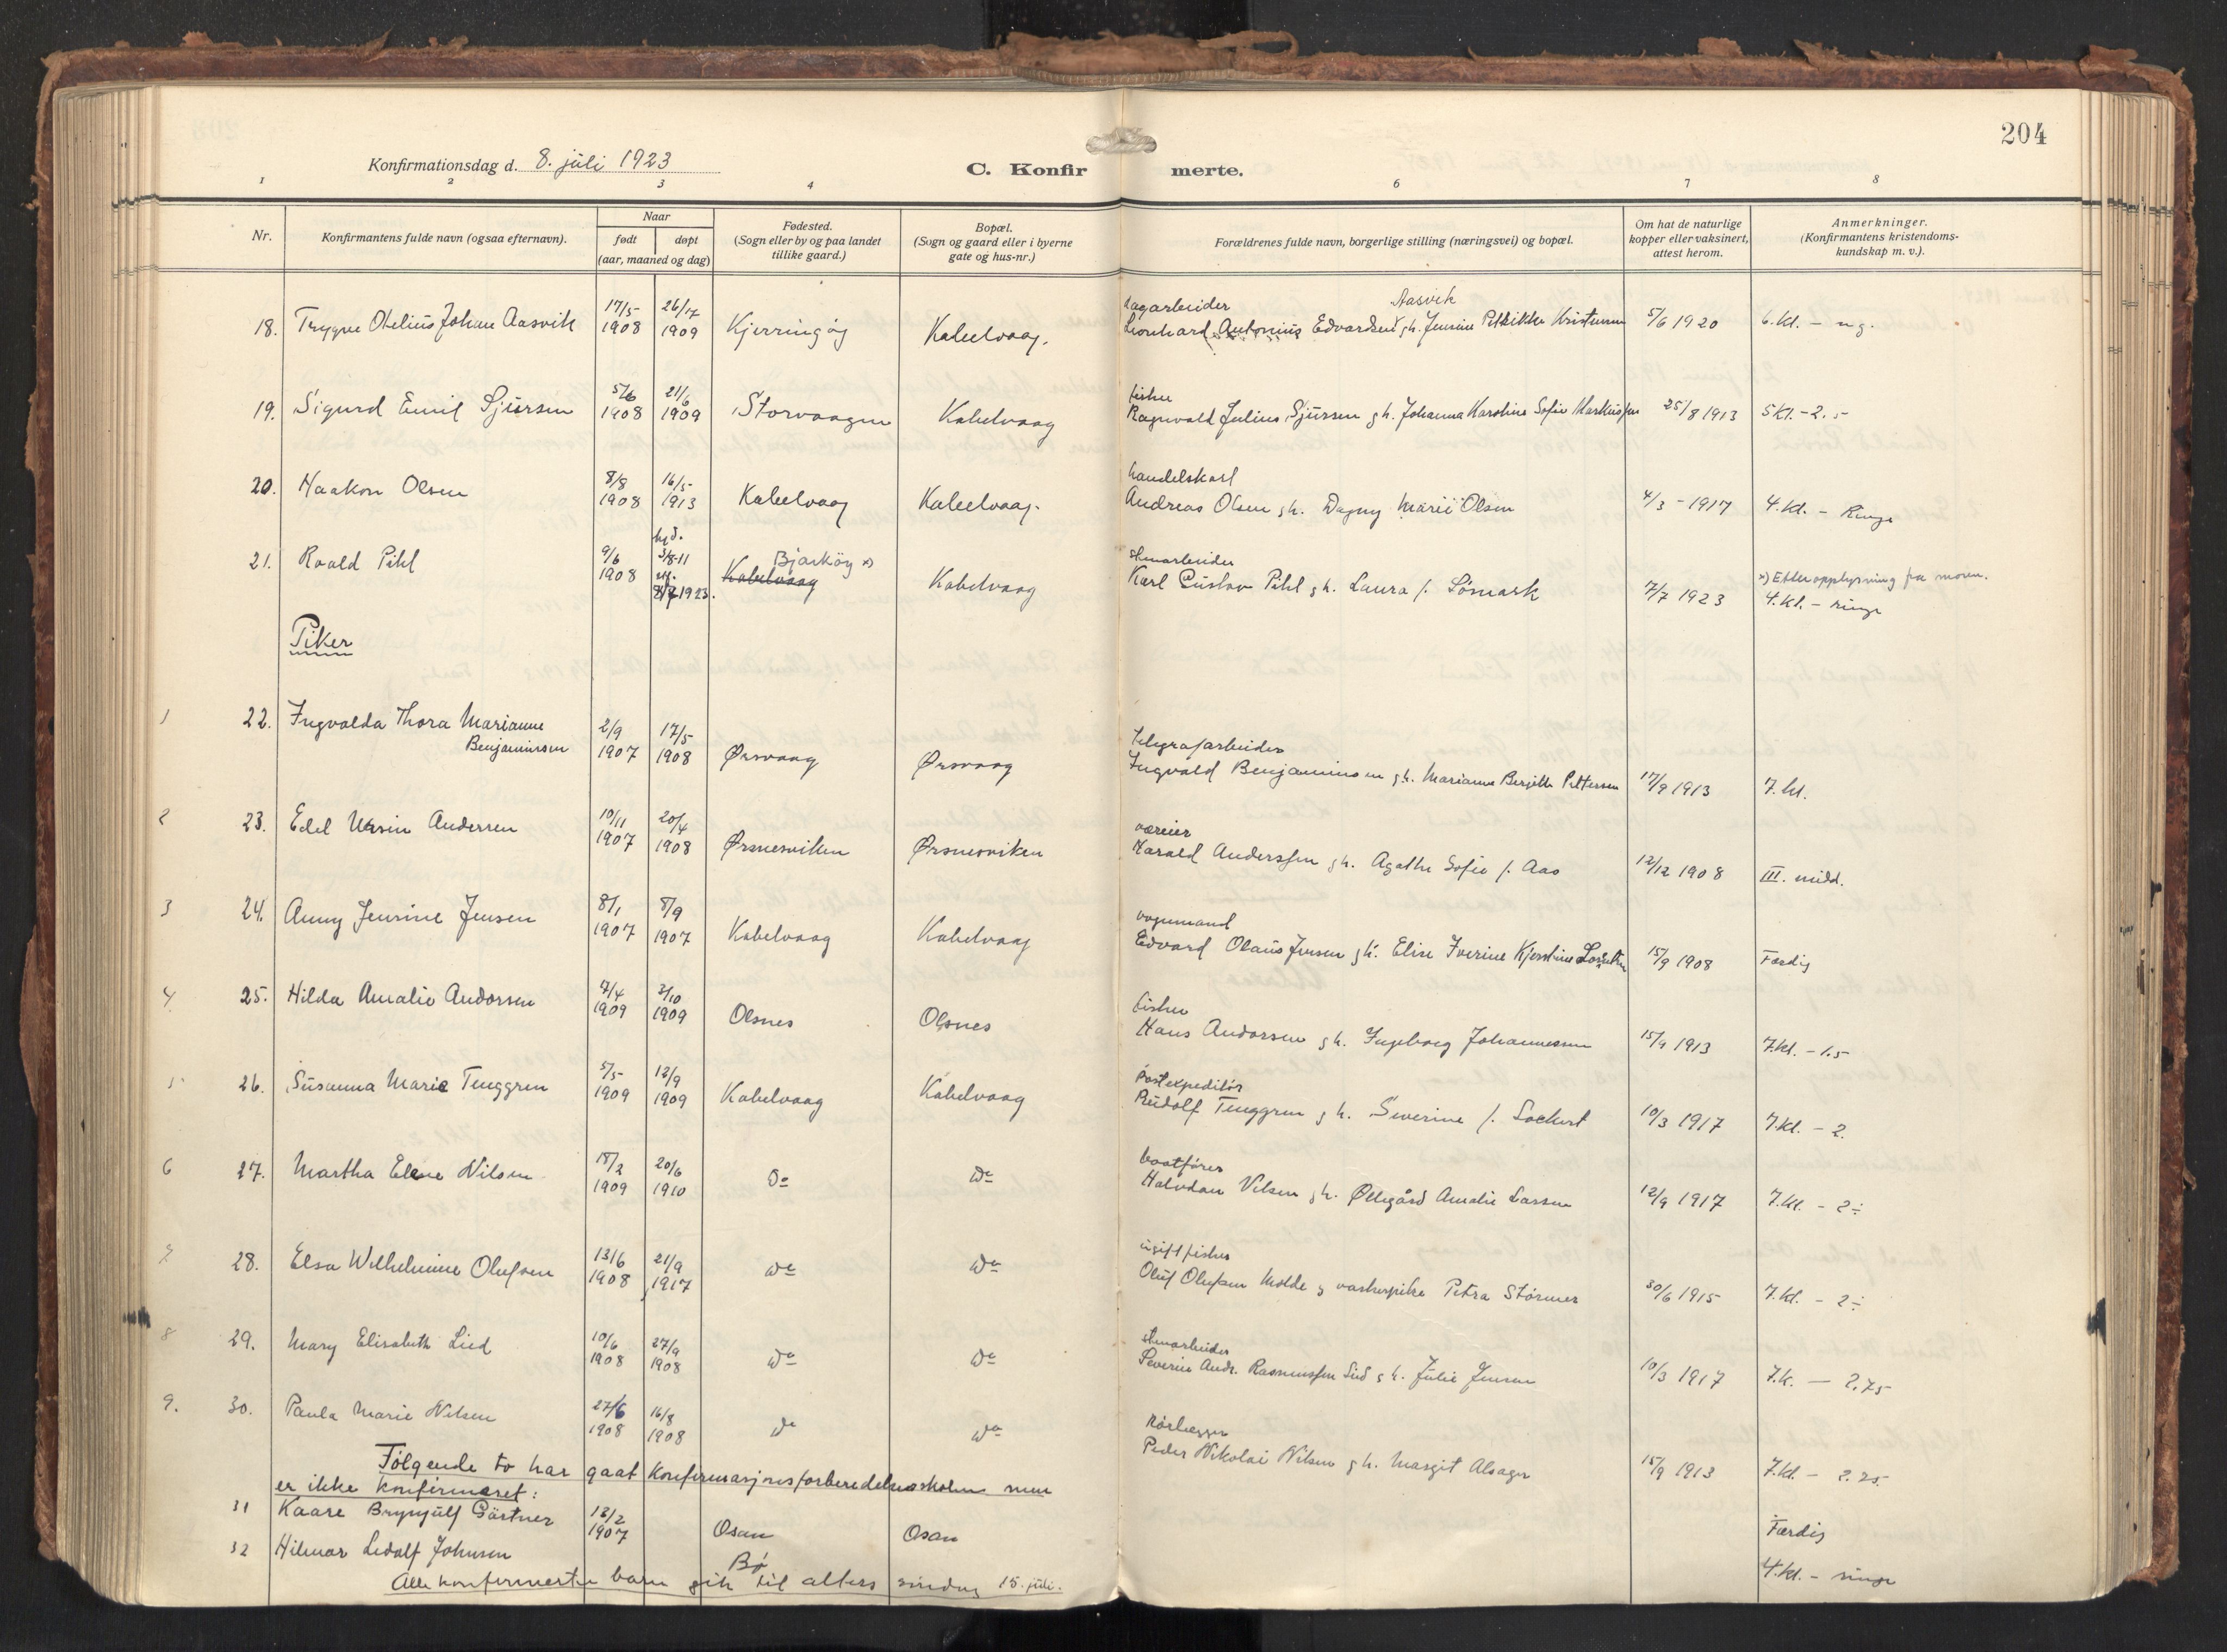 204
Konfirmationsdag d. 8. juli 1923
C. Konfirmerte.
1 2 3 4 6 7 8
Nr.
Konfirmantens fulde navn (ogsaa efternavn).
Naar
født døpt
(aar, maaned og dag)
Fødested.
(Sogn eller by og paa landet
tillike gaard.)
Bopæl.
(Sogn og gaard eller i byerne
gate og hus-nr.)
Forældrenes fulde navn, borgerlige stilling (næringsvei) og bopæl.
Om hat de naturlige
kopper eller vaksinert,
attest herom.
Anmerkninger.
(Konfirmantens kristendoms-
kundskap m. v.).
dagarbeider Aasvik
17/5 26/7
18. Trygve Otelius Johan Aasvik 1908 1909 Kjerringøy Kabelvaag. Leonhard Antonius Edvardsen g h. Jensine Kristensen 5/6 1920 6. kl. - ng.
fisker
5/6 21/6
19. Sigurd Emil Sjursen 1908 1909 Storvaagen Kabelvaag Ragnvald Julius Sjursen g h. Johanna Karoline Sofie Markussen 25/8 1913 5 kl. - 2.5
handelskarl
8/8 16/5
20. Haakon Olsen 1908 1913 Kabelvaag Kabelvaag. Andreas Olsen g h. Dagny Marie Olsen 4/3 - 1917 4. kl. - Ringe
hjd.
9/6 3/8-11 Bjarköy x)
stenarbeider
21. Roald Pihl 1908 Kabelvaag Kabelvaag Karl Gustav Pihl g h. Laura f. Lømark 7/7 1923 x) Efter opplysning fra moren.
8/7 1923. 4. kl. - ringe
Piker
1 22. Ingvalda Thora Marianne
Benjaminsen 2/9 1907 17/5 1908 Ørsvaag Ørsvaag telegrafarbeider
Ingvald Benjaminsen g h. Marianne Bergitte Pettersen 17/9 1913 7. kl.
2 23. Edel Ursin Anderssen 10/11 1907 20/4 1908 Ørsnesviken Ørsnesviken væreier
Harald Anderssen g h. Agathe Sofie f. Aas 12/12 1908 III. midd.
3 24. Anny Jensine Jensen 8/1 1907 8/9 1907 Kabelvaag Kabelvaag vognmand
Edvard Olaus Jensen g h. Elise Iverine Kjerstine 15/9 1908 Færdig
4 25. Hilda Amalie Andorsen 7/4 1909 3/10 1909 Olsnes Olsnes fisker
Hans Andorsen g h. Ingeborg Johannessen 15/9 1913 7. kl. - 1.5
5 26. Susanna Marie Tenggren 5/5 1909 12/9 1909 Kabelvaag Kabelvaag Postexpeditør
Rudolf Tenggren g h. Severine f. Lockert 10/3 1917 7. kl. - 2.
6 27. Martha Elene Nilsen 18/2 1909 20/6 1910 Do Do baatfører
Halvdan Nilsen g h. Øllegård Amalie Larsen 12/9 1917 7. kl. - 2÷
7 28. Elsa Wilhelmine Olufsen 13/6 1908 21/9 1917 Do Do ugift fisker
Oluf Olufsen Molde g vaskerpike Petra Størmer 30/6 1915 7. kl. - 2÷
8 29. Mary Elisabeth Lied 10/6 1908 27/9 1908 Do Do stenarbeider
Severin Andr. Rasmussen Lied g h. Julie Jensen 10/3 1917 7. k. - 2,75
9. 30. Paula Marie Nilsen 27/6 1908 16/8 1908 Do Do Rørlægger
Peder Nikolai Nilsen g h. Margit Alsager 15/9 1913 7. kl. - 2.25.
Følgende to har gaat konfirmasjonsforberedelsesskolen men
er ikke konfirmeret:
31 Kaare Brynjulf Gärtner 13/2 1907 Osan Osan Færdig
32 Hilmar Ledolf Johnsen Bø 4. kl. - ringe
Alle konfirmerte barn gik til alters søndag 15. juli.